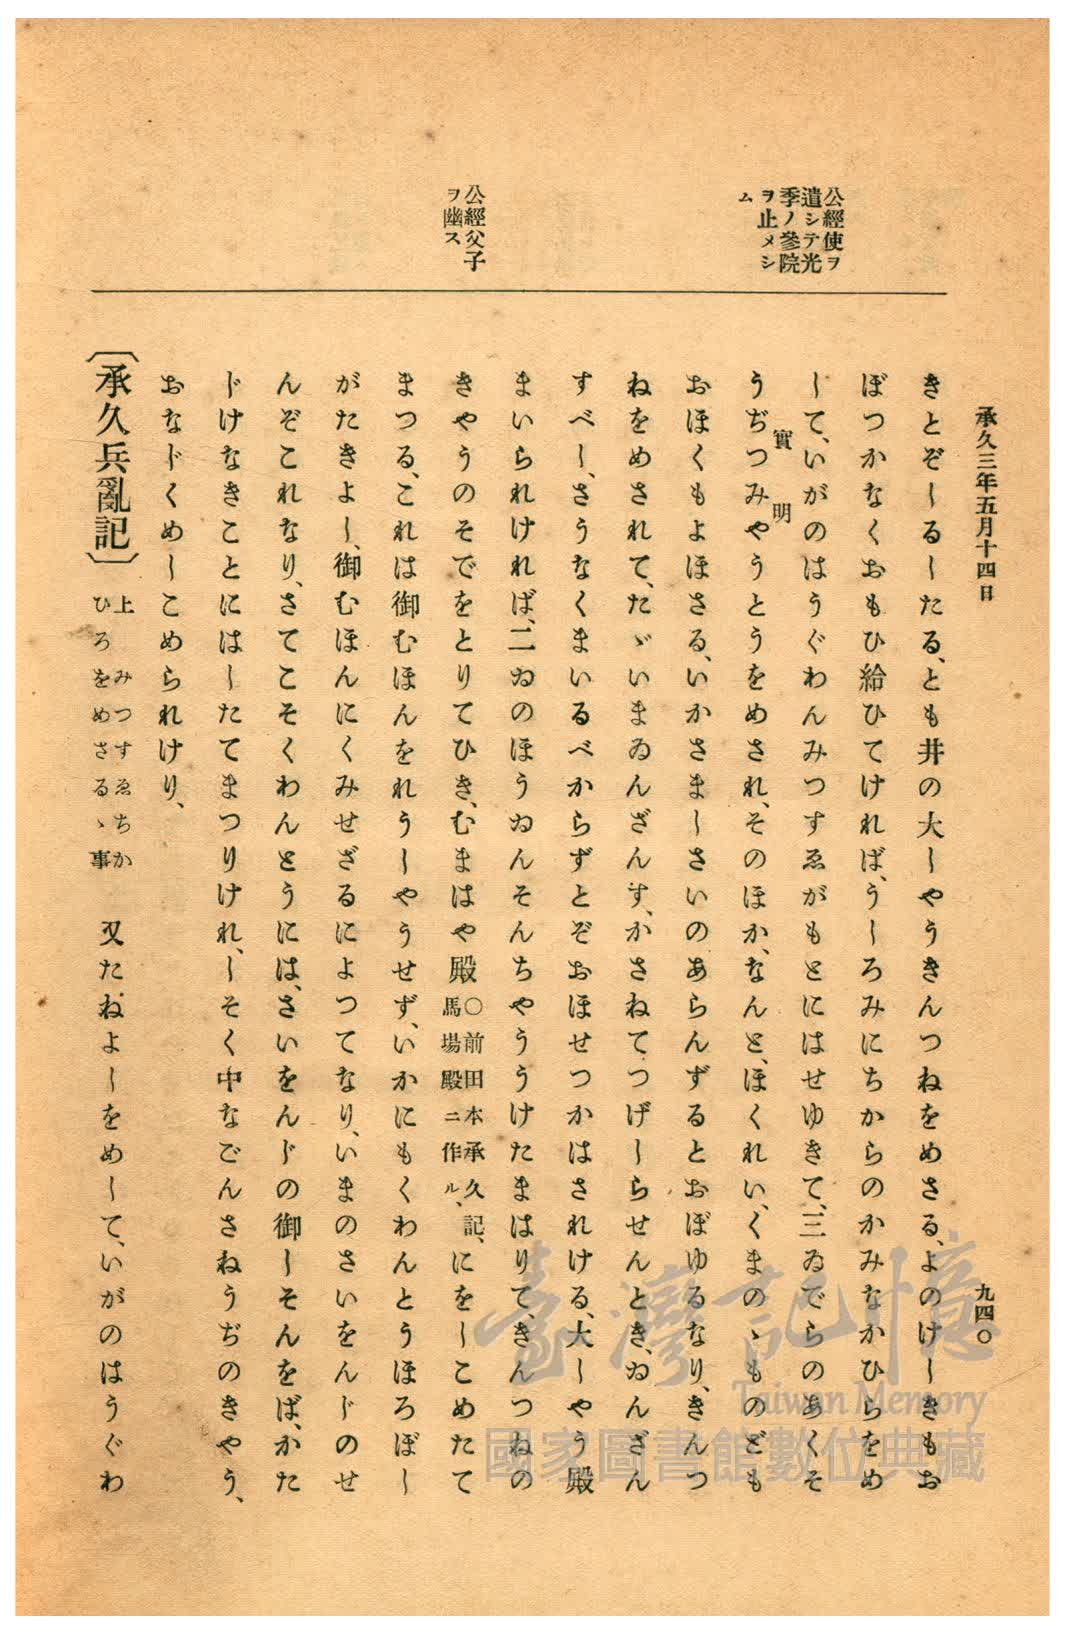 承久三年五月十四日
九四〇
公經使ヲ
遣シテ光
季ノ參院
ヲ止メシ
ム
公經父子
ヲ幽ス
きとぞしるしたる、とも井の大しやうきんつねをめさる、よのけしきもお
ぼつかなくおもひ給ひてければ、うしろみにちからのかみなかひらをめ
して、いがのはうぐわんみつすゑがもとにはせゆきて、三ゐでらのあくそ
實明
うぢつみやうとうをめされ、そのほか、なんと、ほくれい、くまのゝものども
おほくもよほさる、いかさましさいのあらんずるとおぼゆるなり、きんつ
ねをめされて、たゞいまゐんざんす、かさねてつげしらせんとき、ゐんざん
すべし、さうなくまいるべからずとぞおほせつかはされける、大しやう殿
まいられければ、二ゐのほうゐんそんちやううけたまはりて、きんつねの
きやうのそでをとりてひき、むまはや殿〇前田本承久記、馬場殿ニ作ル、にをしこめたて
まつる、これは御むほんをれうしやうせず、いかにもくわんとうほろぼし
がたきよし、御むほんにくみせざるによつてなり、いまのさいをんじのせ
んぞこれなり、さてこそくわんとうには、さいをんじの御しそんをば、かた
じけなきことにはしたてまつりけれ、しそく中なごんさねうぢのきやう、
おなじくめしこめられけり、
〔承久兵亂記〕上 みつすゑちかひろをめさるゝ事 又たねよしをめして、いがのはうぐわ
臺灣記憶
Taiwan Memory
國家圖書館數位典藏